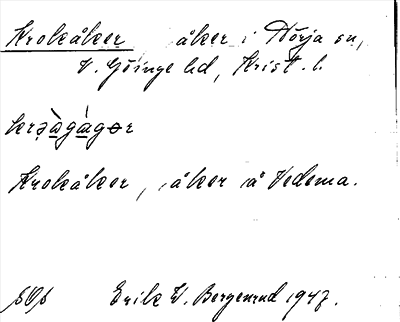 Krokåker åker i Nörja sn,
V. Göinge hd, Krist. l.
Krokåker, åker å Vedema.
Erik V. Bergenrud 1947.